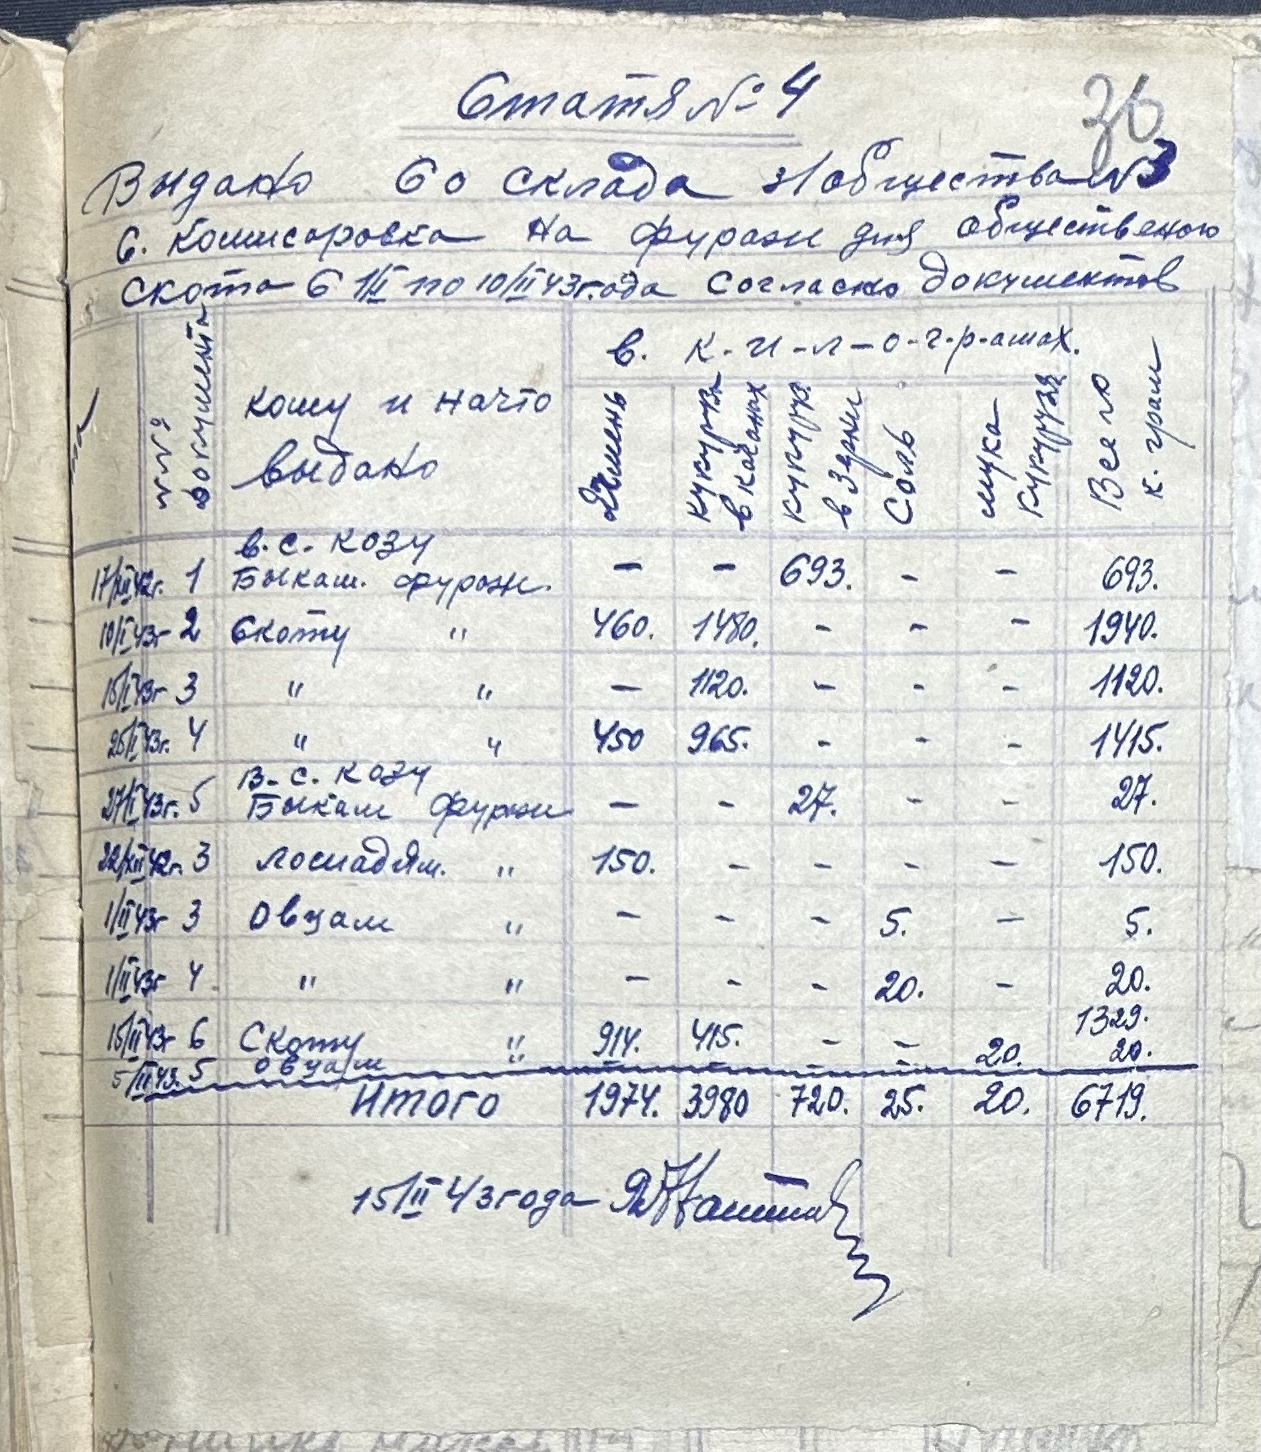 Статя № 4
30
Выдано Со склада з/общества №3
с. Комисаровка на фураж для общественого
скота с 1/II по 10/III 43 года Согласно документов
№№ документ
кому и на что выдано
в. к-и-л-о-г-р-амах.
Ячмень
кукурз. в качанах
кукуруз. в зерни
Соль
мука кукурузн
Всего к. грам
17/XII 42г. 1 в. с. козу Быкам. фураж. – – 693. – – 693.
10/I 43г 2 Скоту " 460. 1480. – – – 1940.
15/II 43г 3 " " – 1120. – – – 1120.
25/I 43г. 4 " " 450 965. – – – 1415.
27/I 43г. 5 в. с. козу Быкам фураж – – 27. – – 27.
22/XII 42г. 3 лошадям. " 150. – – – – 150.
1/II 43г 3 Овцам " – – – 5. – 5.
1/II 43г 4 " " – – – 20. – 20.
15/II 43г 6 Скоту " 914. 415. – – 1329.
5/III 43. 5 овцам " – – – – 20. 20.
Итого 1974. 3980 720. 25. 20. 6719.
15/II 43 года